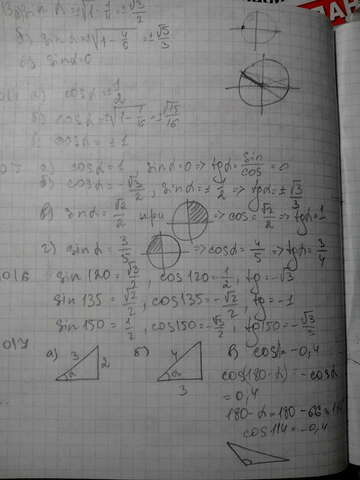 sin α = √1 - 1/4 = ± √3/2
б) sin α = √1 - 4/9 = ± √5/3
в) sin α = 0
а) cos α = ± 1/2
б) cos α = √1 - 1/16 = ± √15/16
в) cos α = ± 1
а) cos α = 1 sin α = 0 => tg α = sin/cos = 0
б) cos α = - √3/2, sin α = ± 1/2 => tg α = ± √3/3
в) sin α = √2/2 при => cos = √2/2 => tg α = 1
г) sin α = 3/5 => cos α = 4/5 => tg α = 3/4
sin 120 = √3/2, cos 120 = 1/2, tg = -√3
sin 135 = √2/2, cos 135 = - √2/2, tg = -1
sin 150 = 1/2, cos 150 = - √3/2, tg 150 = - √3/3
а) 3 2 α
б) 4 α 3
в) cos α = -0,4
cos(180-α) = -cos α
= 0,4
180-α = 180-66 = 114
cos 114 = -0,4